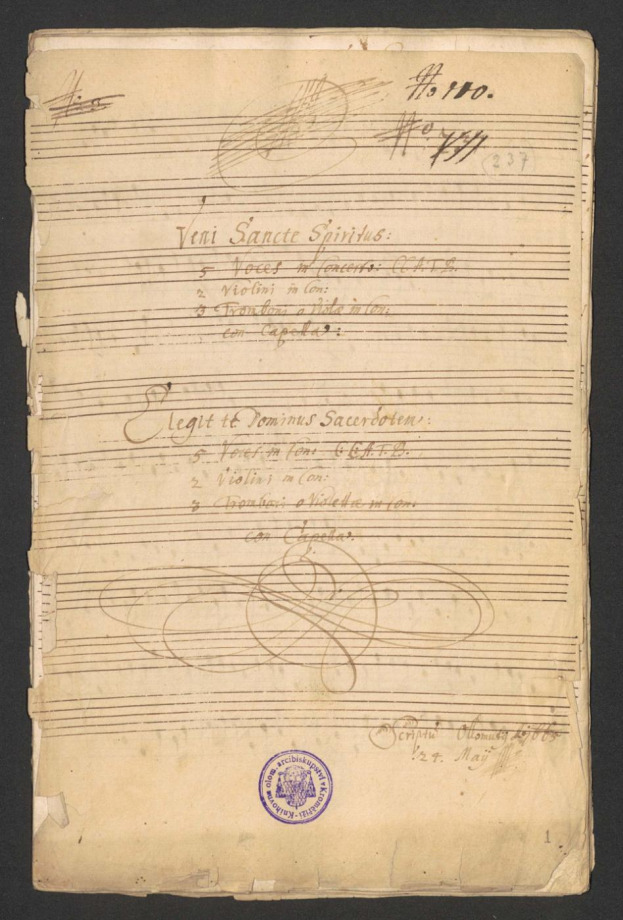 No 110.
No
(237)
Veni Sancte Spiritus:
5 Voces in Concerto: CC.A.T.B.
2 Violini in Con:
3 Tromboni o Violæ in Con:
con Capella:
Elegit te Dominus Sacerdotem:
5 Voces in Con: CC.A.T.B.
2 Violini in Con:
3 Tromboni o Violettæ in Con:
con Capella.
Scriptū Ollomutÿ
24. Maÿ
Knihovna olom. arcibiskupství v Kroměříži
1